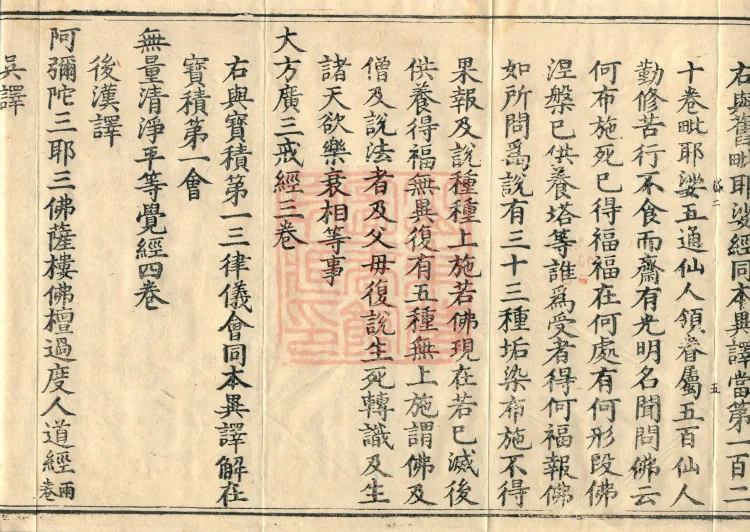 右與舊毗耶娑經同本異譯當第一百二
十卷毗耶娑五通仙人領眷屬五百仙人
勤修苦行不食而齋有光明名聞問佛云
何布施死已得福福在何處有何形段佛
涅槃已供養塔等誰爲受者得何福報佛
如所問爲說有三十三種垢染布施不得
果報及說種種上施若佛現在若已滅後
供養得福無異復有五種無上施謂佛及
僧及說法者及父母復說生死轉識及生
諸天欲樂衰相等事
大方廣三戒經三卷
右與寶積第一三律儀會同本異譯解在
寶積第一會
無量清淨平等覺經四卷
後漢譯
阿彌陀三耶三佛薩樓佛檀過度人道經兩卷
吳譯